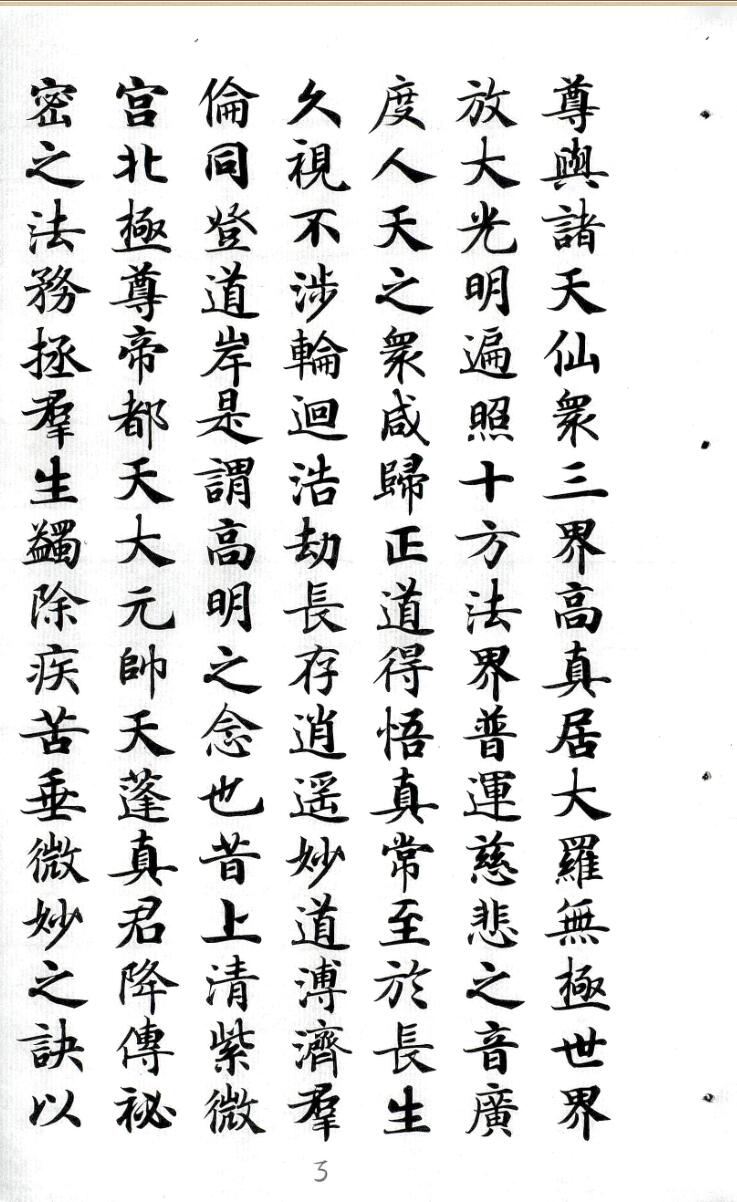 尊與諸天仙衆三界高真居大羅無極世界
放大光明遍照十方法界普運慈悲之音廣
度人天之衆咸歸正道得悟真常至於長生
久視不涉輪迴浩劫長存逍遥妙道溥濟羣
倫同登道岸是謂高明之念也昔上清紫微
宫北極尊帝都天大元帥天蓬真君降傳祕
密之法務拯羣生蠲除疾苦垂微妙之訣以
3